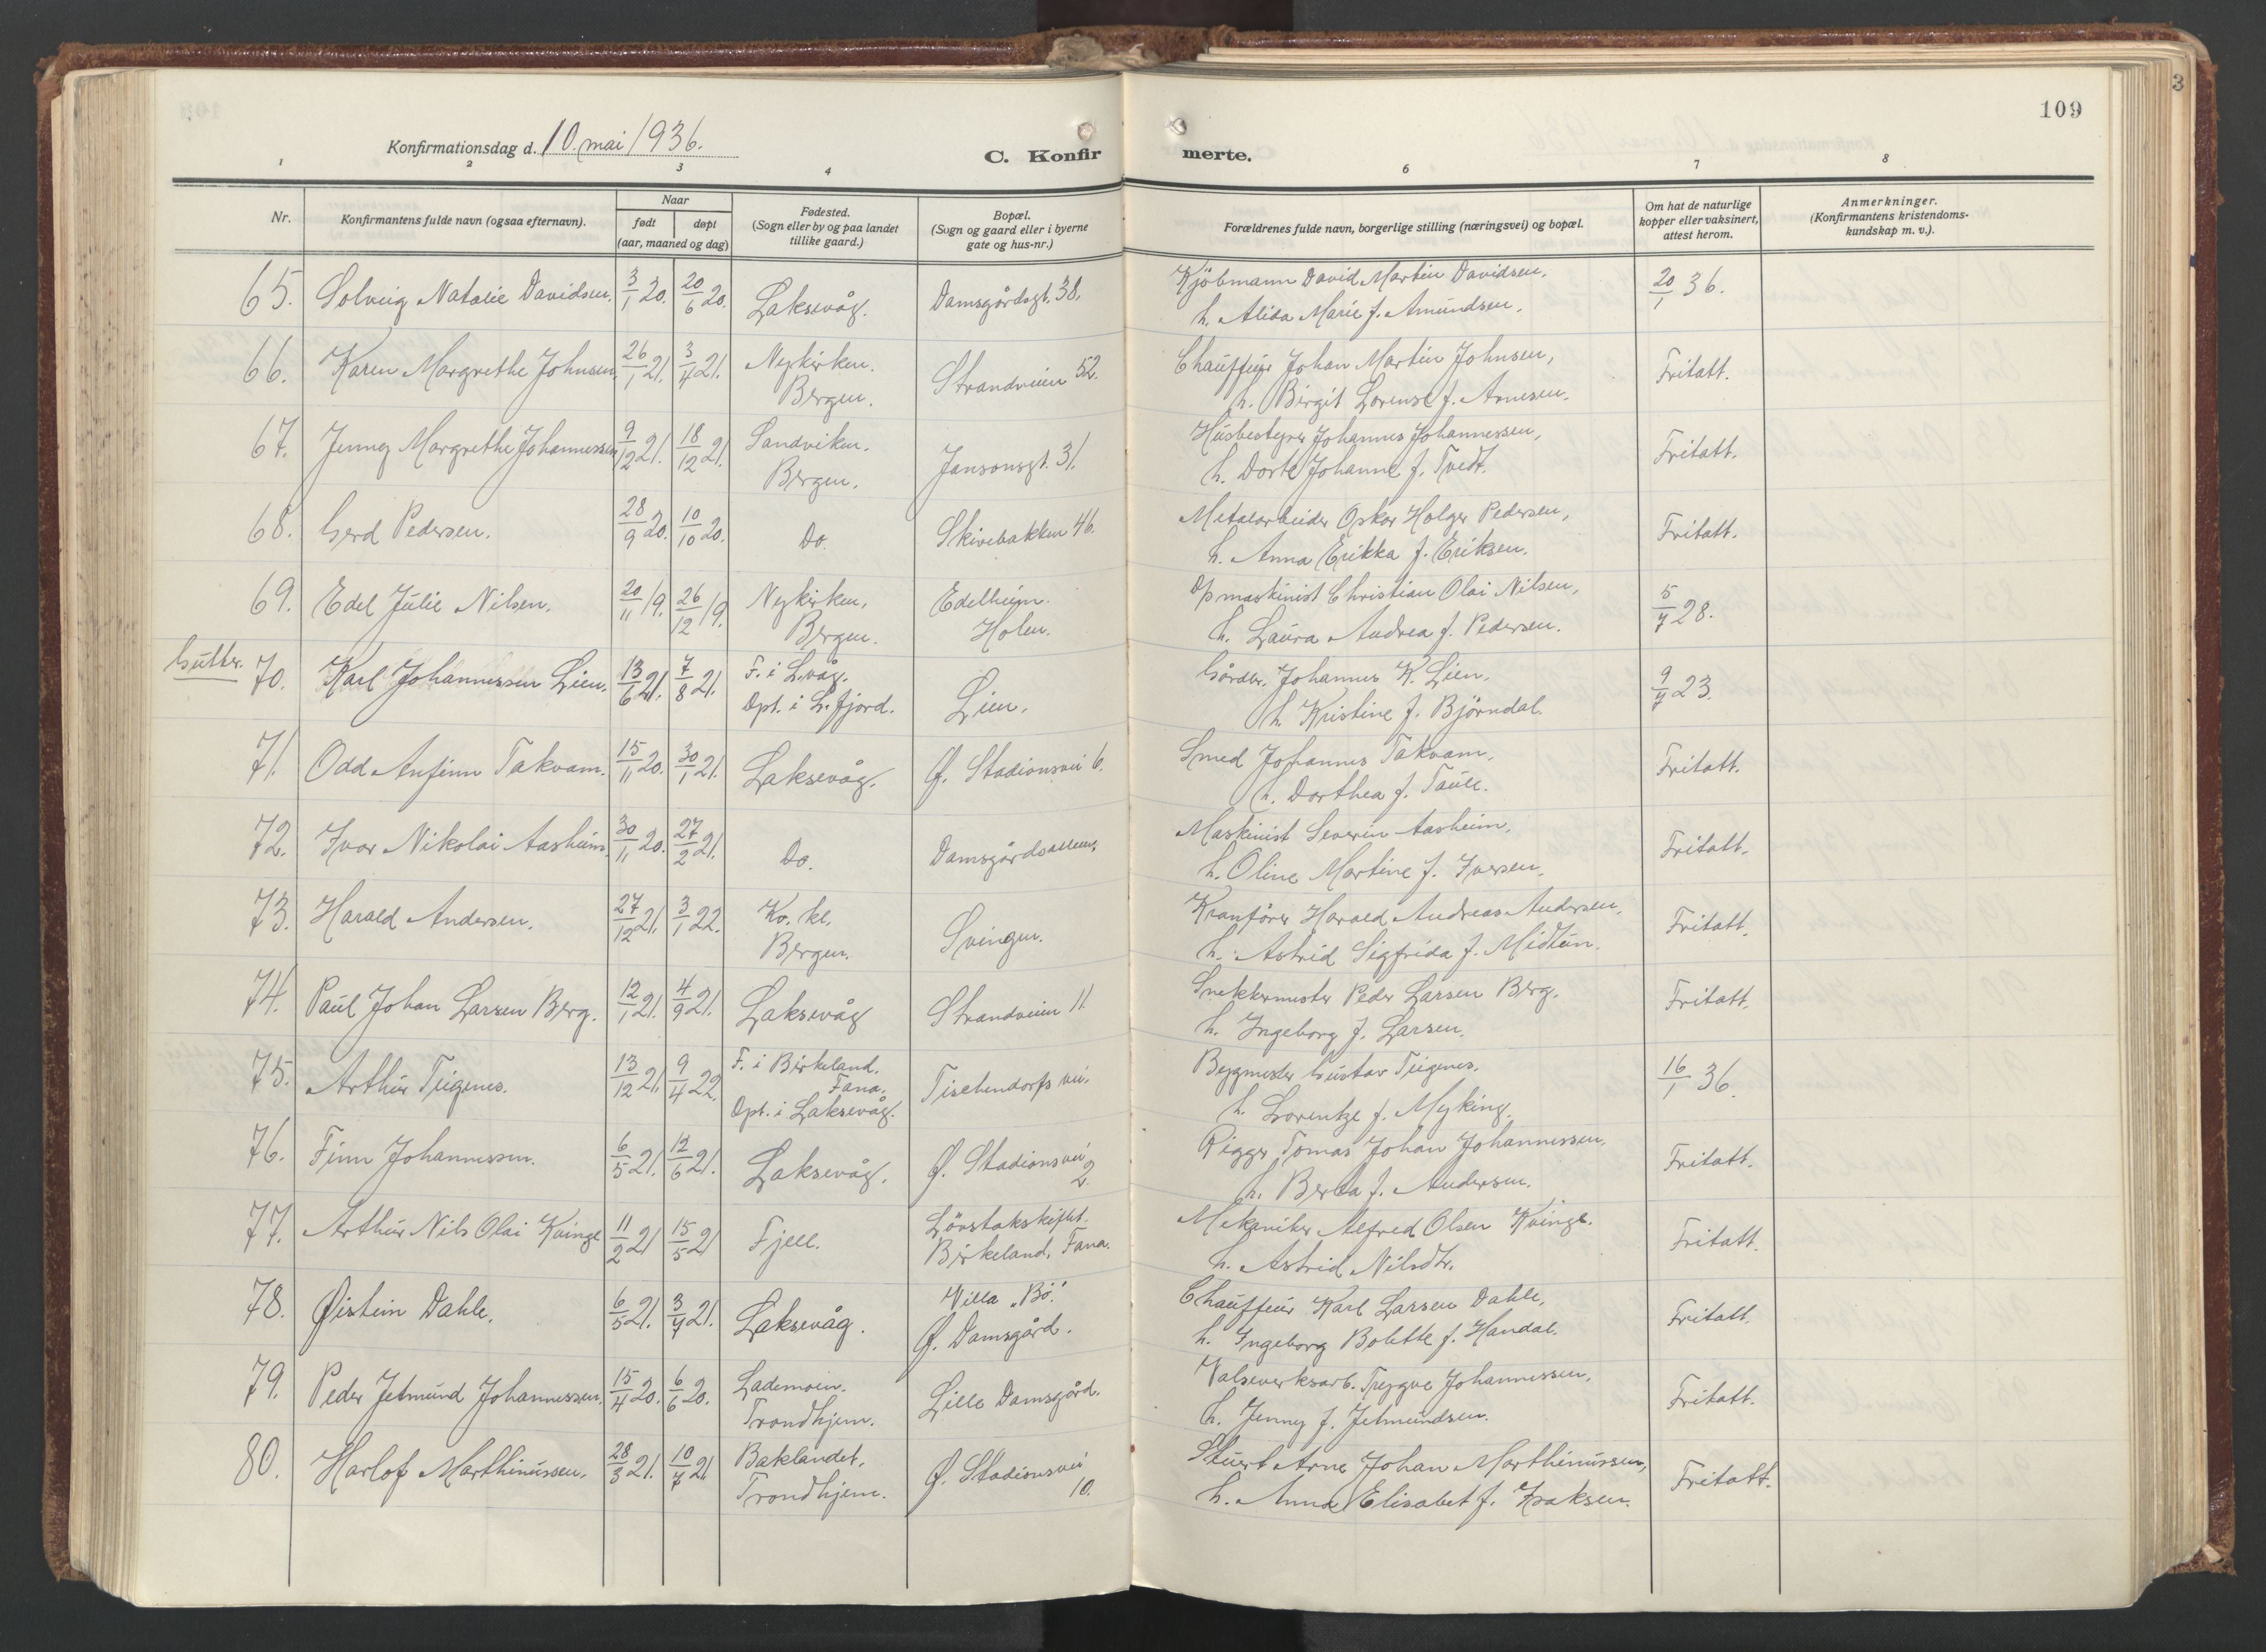 109
3
Konfirmationsdag d. 10. mai 1936.
C. Konfirmerte.
1 2 3 4 6 7 8
Nr.
Konfirmantens fulde navn (ogsaa efternavn).
Naar
født
døpt
(aar, maaned og dag)
Fødested.
(Sogn eller by og paa landet
tillike gaard.)
Bopæl.
(Sogn og gaard eller i byerne
gate og hus-nr.)
Forældrenes fulde navn, borgerlige stilling (næringsvei) og bopæl.
Om hat de naturlige
kopper eller vaksinert,
attest herom.
Anmerkninger.
(Konfirmantens kristendoms-
kundskap m. v.).
65. Solveig Natalie Davidsen. 3/1 20. 20/6 20. Laksevåg. Damsgårdsgt. 38. Kjöbmann David Martin Davidsen. 20/1 36.
h. Alida Marie f. Amundsen.
66. Karen Margrethe Johnsen. 26/1 21. 3/4 21. Nykirken. Strandveien 52. Chauffeur Johan Martin Johnsen, Fritatt.
Bergen. h. Birgit Lorense f. Arnesen.
67. Jenny Margrethe Johannessen 9/12 21. 18/12 21. Sandviken. Jansonsgt. 31. Husbestyrer Johannes Johannessen, Fritatt.
Bergen. h. Dorte Johanne f. Tvedt.
68. Gerd Pedersen. 28/9 20. 10/10 20. Do. Skivebakken 46. Metalarbeider Oskar Holger Pedersen, Fritatt.
h. Anna Erikka f. Eriksen.
69. Edel Julie Nilsen. 20/11 19. 26/12 19. Nykirken, Edelheim. Opmaskinist Christian Olai Nilsen, 5/7 28.
Bergen. Holen. h. Laura Andrea f. Pedersen.
Gutter.
70. Karl Johannessen Lien. 13/6 21. 7/8 21. F. i L.våg. Lien. Gårdbr. Johannes K. Lien. 9/7 23.
Dpt. i L. fjord. h. Kristine f. Björndal.
71. Odd Anfinn Takvam. 15/11 20. 30/1 21. Laksevåg. Ø. Stadionsvei 6. Smed Johannes Takvam. Fritatt.
h. Dorthea f. Taule.
72. Ivar Nikolai Aasheim. 30/11 20. 27/2 21. Do. Damsgårdsalleen. Maskinist Severin Aasheim. Fritatt.
h. Oline Martine f. Iversen.
73. Harald Andersen. 27/12 21. 3/1 22. Ko. kl. Svingen. Kranförer Harald Andreas Andersen. Fritatt.
Bergen. h. Astrid Sigfrida f. Midtun.
74. Paul Johan Larsen Berg. 12/1 21. 4/9 21. Laksevåg Strandveien 11. Snekkermester Peder Larsen Berg. Fritatt.
h. Ingeborg f. Larsen.
75. Arthur Teigenes. 13/12 21. 9/4 22. F. i Birkeland. Tischendorfs vei. Byggmester Gustav Teigenes. 16/1 36.
Fana.
Dpt. i Laksevåg. h. Lorentze f. Myking.
76. Finn Johannessen. 6/5 21. 12/6 21. Laksevåg. Ø. Stadionsvei 2. Rigger Tomas Johan Johannessen. Fritatt.
h. Berta f. Andersen.
77. Arthur Nils Olai Kvinge 11/2 21 15/5 21 Fjell. Lövstakskiftet. Mekaniker Alfred Olsen Kvinge. Fritatt.
Birkeland. Fana. h. Astrid Nilsdtr.
78. Øistein Dahle. 6/5 21. 3/7 21. Laksevåg. Villa "Bö". Chauffeur Karl Larsen Dahle. Fritatt.
Ø. Damsgård. h. Ingeborg Bolette f. Handal.
79. Peder Jetmund Johannessen. 15/4 20. 6/6 20. Lademoen. Lille Damsgård. Valseverksarb. Trygve Johannessen. Fritatt.
Trondhjem. h. Jenny f. Jetmundsen.
80. Harlof Marthinussen. 28/3 21. 10/7 21 Baklandet. Ø. Stadionsvei Stuert Arne Johan Marthinussen, Fritatt.
Trondhjem. 10. h. Anna Elisabet f. Isaksen.